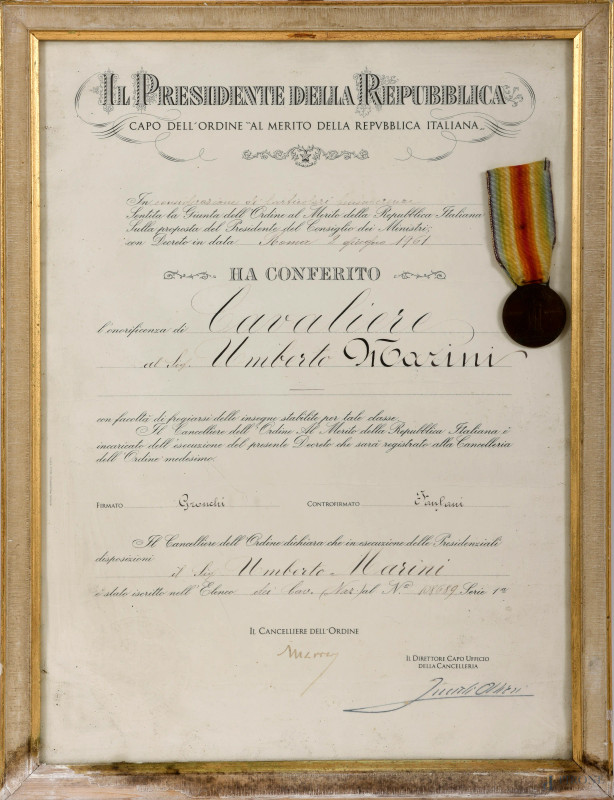 IL PRESIDENTE DELLA REPUBBLICA
CAPO DELL'ORDINE "AL MERITO DELLA REPVBBLICA ITALIANA"
In considerazione di particolari benemerenze
Sentita la Giunta dell'Ordine al Merito della Repubblica Italiana
Sulla proposta del Presidente del Consiglio dei Ministri;
con Decreto in data Roma 2 giugno 1961
HA CONFERITO
l'onorificenza di Cavaliere
al Sig. Umberto Marini
con facoltà di fregiarsi delle insegne stabilite per tale classe.
Il Cancelliere dell'Ordine Al Merito della Repubblica Italiana è
incaricato dell'esecuzione del presente Decreto che sarà registrato alla Cancelleria
dell'Ordine medesimo.
FIRMATO Gronchi CONTROFIRMATO Fanfani
Il Cancelliere dell'Ordine dichiara che in esecuzione delle Presidenziali
disposizioni il Sig. Umberto Marini
è stato iscritto nell'Elenco dei Cav. Naz.li al N.° Serie 1ª
IL CANCELLIERE DELL'ORDINE
IL DIRETTORE CAPO UFFICIO
DELLA CANCELLERIA